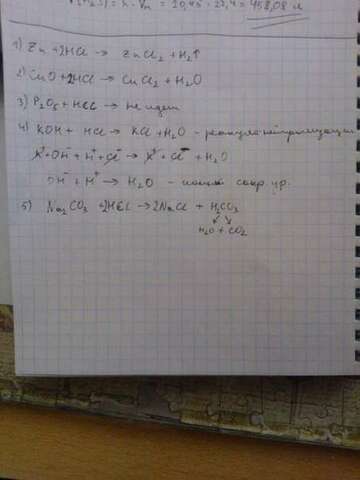 = 20,45 · 22,4 = 458,08 л
1) Zn + 2HCl → ZnCl₂ + H₂↑
2) CuO + 2HCl → CuCl₂ + H₂O
3) P₂O₅ + HCl → не идет
4) KOH + HCl → KCl + H₂O - реакция нейтрализации
K⁺OH⁻ + H⁺ + Cl⁻ → K⁺ + Cl⁻ + H₂O
OH⁻ + H⁺ → H₂O - сокр. ур.
5) Na₂CO₃ + 2HCl → 2NaCl + H₂CO₃
↙ ↘
H₂O + CO₂